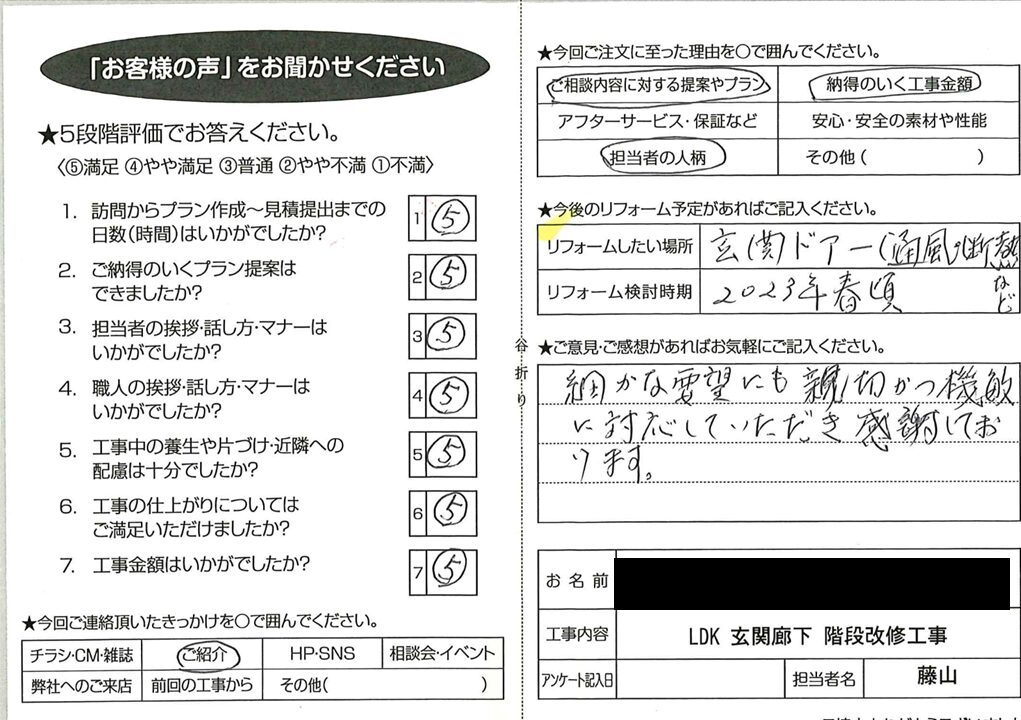 「お客様の声」をお聞かせください
★5段階評価でお答えください。
〈⑤満足 ④やや満足 ③普通 ②やや不満 ①不満〉
1. 訪問からプラン作成～見積提出までの
日数(時間)はいかがでしたか?
1 ⑤
2. ご納得のいくプラン提案は
できましたか?
2 ⑤
3. 担当者の挨拶・話し方・マナーは
いかがでしたか?
3 ⑤
4. 職人の挨拶・話し方・マナーは
いかがでしたか?
4 ⑤
5. 工事中の養生や片づけ・近隣への
配慮は十分でしたか?
5 ⑤
6. 工事の仕上がりについては
ご満足いただけましたか?
6 ⑤
7. 工事金額はいかがでしたか?
7 ⑤
★今回ご連絡頂いたきっかけを○で囲んでください。
チラシ・CM・雑誌 ご紹介 HP・SNS 相談会・イベント
弊社へのご来店 前回の工事から その他( )
谷折り
★今回ご注文に至った理由を○で囲んでください。
ご相談内容に対する提案やプラン 納得のいく工事金額
アフターサービス・保証など 安心・安全の素材や性能
担当者の人柄 その他( )
★今後のリフォーム予定があればご記入ください。
リフォームしたい場所 玄関ドアー(通風、断熱など
リフォーム検討時期 2023年春頃
★ご意見・ご感想があればお気軽にご記入ください。
細かな要望にも親切かつ機敏
に対応していただき感謝してお
ります。
お名前
工事内容 LDK 玄関廊下 階段改修工事
アンケート記入日 担当者名 藤山